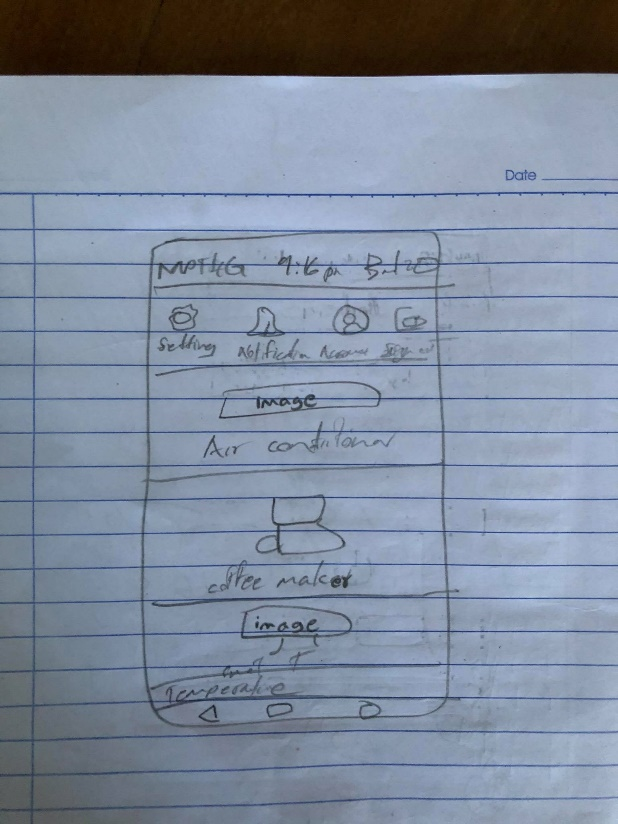 Date
9:16 pm
Setting Notification Account Sign out
image
Air conditioner
coffee maker
image
Temperature